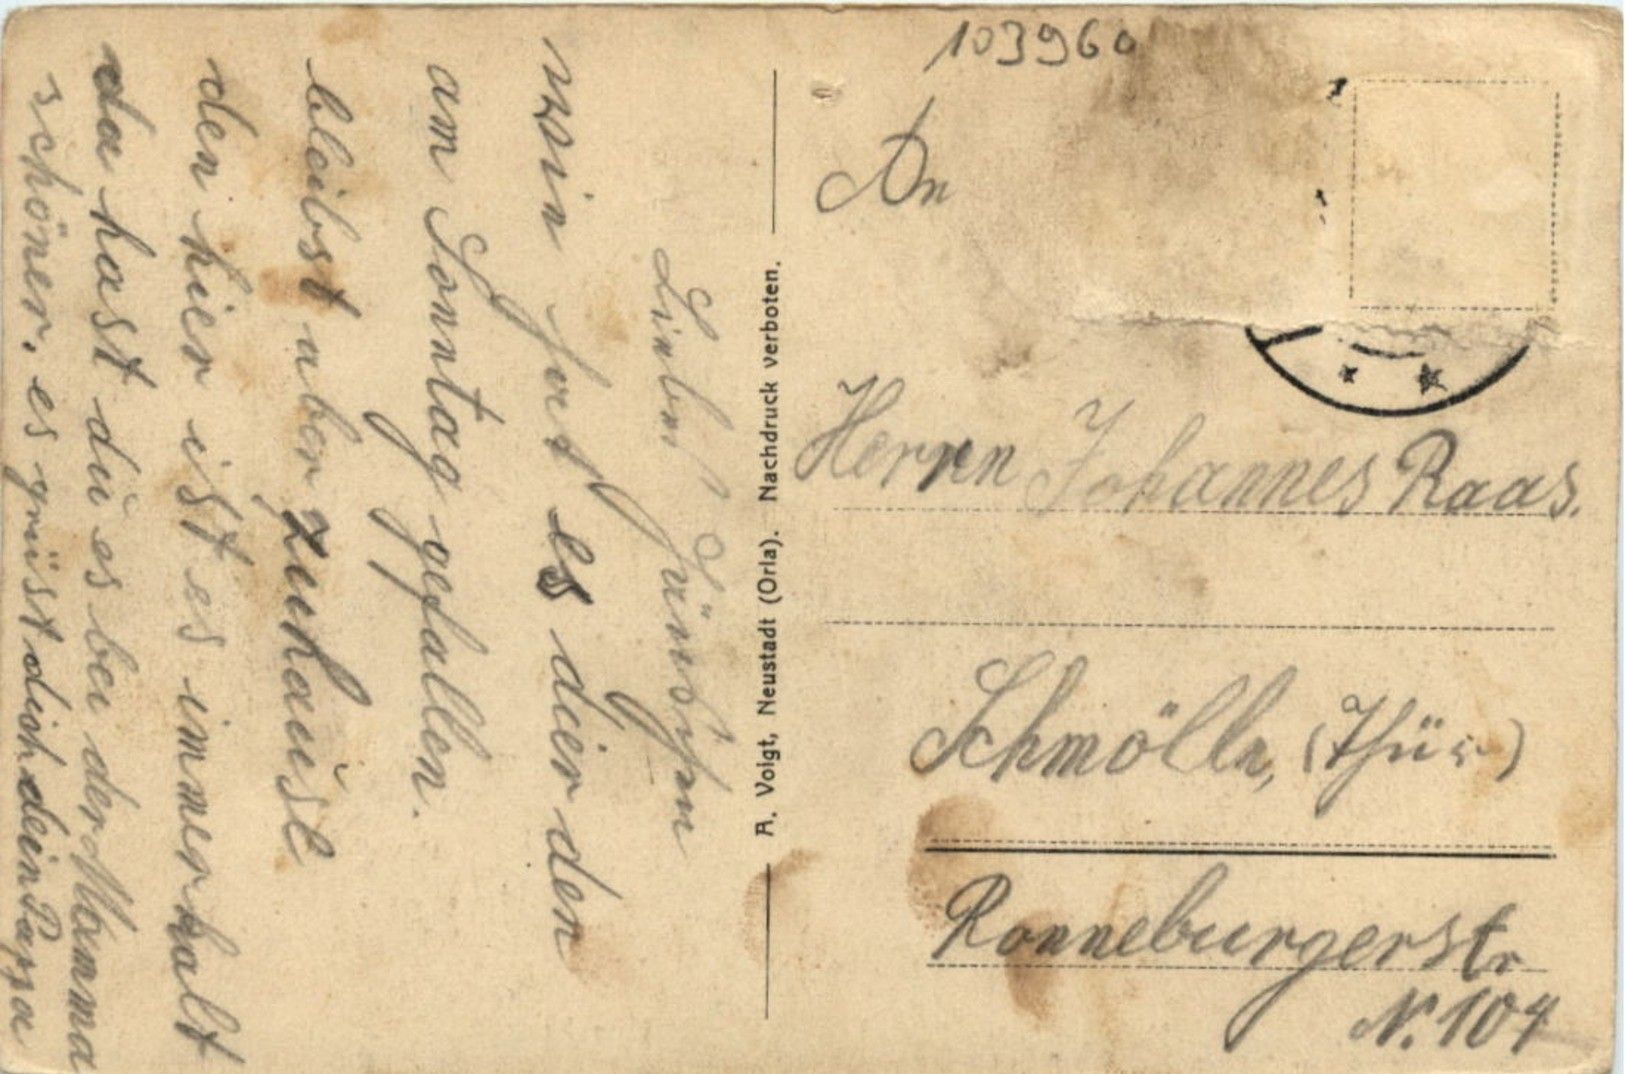 103960
An
Herrn Johannes Raas.
Schmölln, (Thür)
Ronneburgerstr
N. 104
A. Voigt, Neustadt (Orla). Nachdruck verboten.
Lieber
wie hat es dier den
am Sonntag gefallen.
bleibst aber zuhause
den hier ist es immer kalt
da hast du es bei der Mamma
schöner. es grüst dich dein Pappa